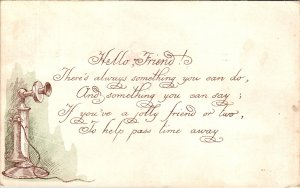 Hello, Friend!
There's always something you can do,
And something you can say;
If you've a jolly friend or two,
To help pass time away